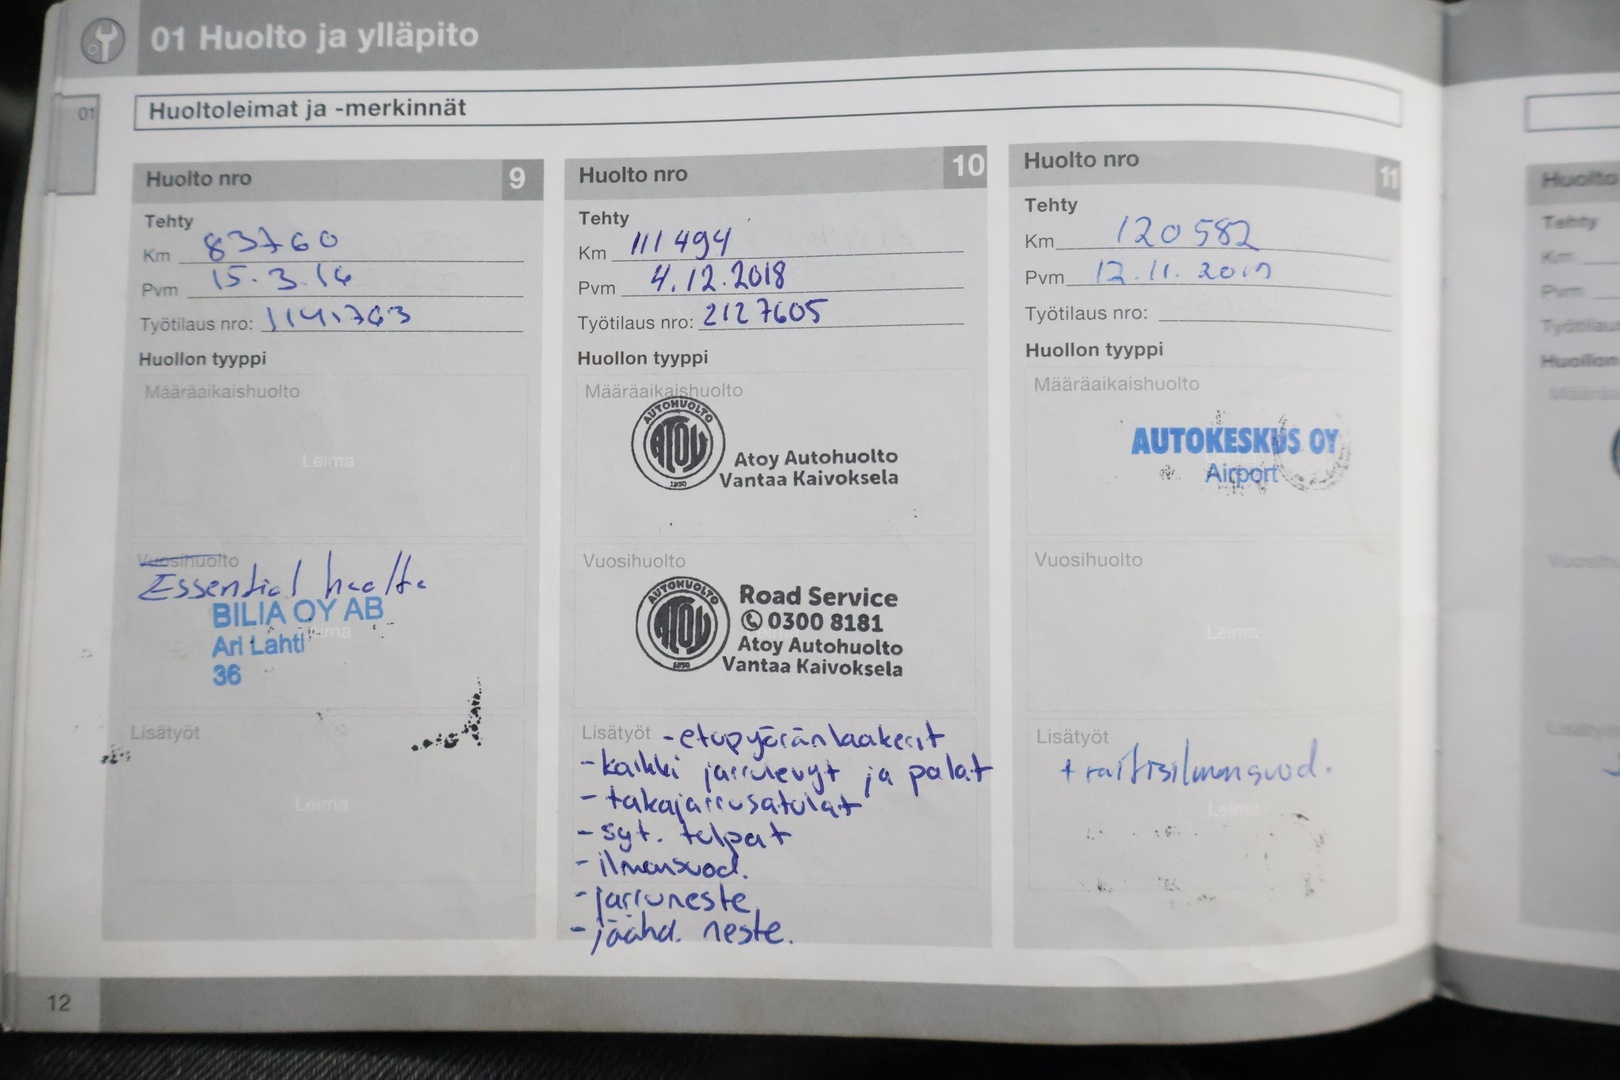 01 Huolto ja ylläpito
01
Huoltoleimat ja -merkinnät
Huolto nro 9
Tehty
Km 83760
Pvm 15.3.16
Työtilaus nro:
Huollon tyyppi
Määräaikaishuolto
Leima
Vuosihuolto
Essential huolto
BILIA OY AB
Leima
Ari Lahti
36
Lisätyöt
Leima
Huolto nro 10
Tehty
Km 111494
Pvm 4.12.2018
Työtilaus nro: 2127605
Huollon tyyppi
Määräaikaishuolto
AUTOHUOLTO
ATOY
1930
Atoy Autohuolto
Vantaa Kaivoksela
Vuosihuolto
AUTOHUOLTO
ATOY
1930
Road Service
0300 8181
Atoy Autohuolto
Vantaa Kaivoksela
Lisätyöt - etupyöränlaakerit
- kaikki jarrulevyt ja palat
- takajarrusatulat
- syt. tulpat
- ilmansuod.
- jarruneste
- jäähd. neste.
Huolto nro 11
Tehty
Km 120582
Pvm 12.11.
Työtilaus nro:
Huollon tyyppi
Määräaikaishuolto
AUTOKESKUS OY
Airport
Vuosihuolto
Leima
Lisätyöt
+ raitisilmansuod.
Leima
12
Huolto
Tehty
Km
Pvm